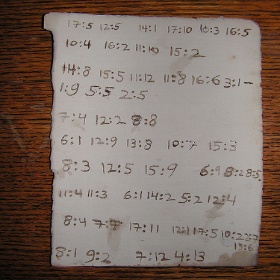 17:5 12:5 14:1 17:10 10:3 16:5
10:4 16:2 11:10 15:2
14:8 15:5 11:12 11:8 16:6 3:1-
1:9 5:5 2:5
7:4 12:2 8:8
6:1 12:9 13:8 10:7 15:3
8:3 12:5 15:9 6:9 8:2 8:5
11:4 11:3 6:1 14:2 5:2 12:4
8:4 7:7 17:11 17:5
8:1 9:2 7:12 4:13